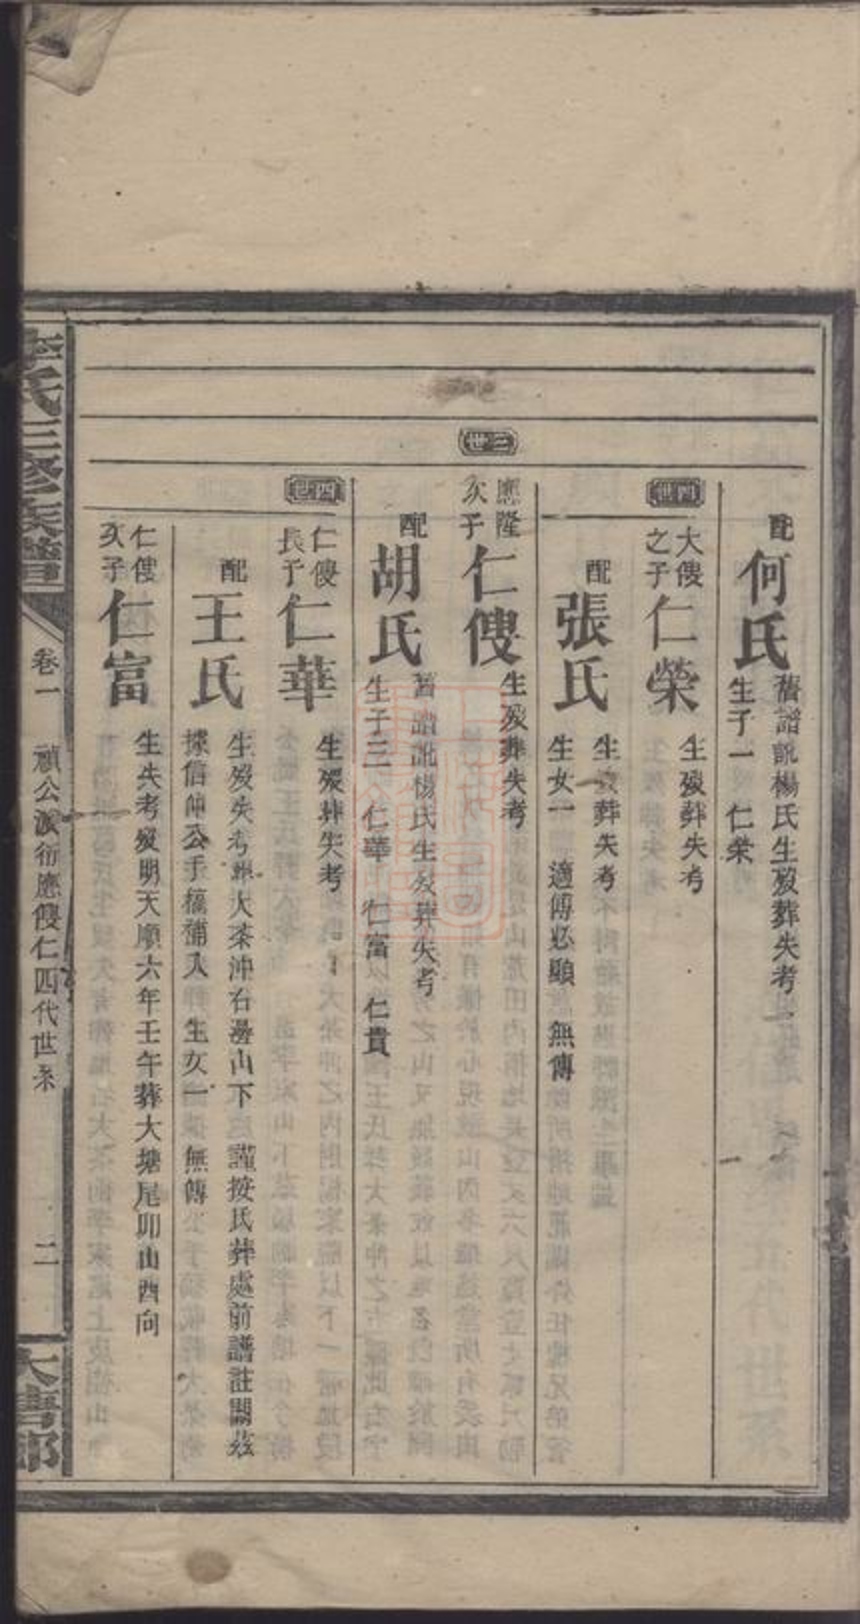 配
何氏
舊譜訛楊氏生殁葬失考
生子一 仁榮
四世
大傁
之子
仁榮
生殁葬失考
配
張氏
生殁葬失考
生女一 適傅必顯 無傳
三世
應隆
次子
仁傁
生殁葬失考
配
胡氏
舊譜訛楊氏生殁葬失考
生子三 仁華 仁富 仁貴
四世
仁傁
長子
仁華
生殁葬失考
配
王氏
生殁失考葬大茶沖右邊山下 謹按氏葬處前譜註闕茲
據信伸公手稿補入 生女一 無傳
仁傁
次子
仁富
生失考殁明天順六年壬午葬大塘尾卯山酉向
李氏三修族譜
卷一
禎公派衍應傁仁四代世系
二
大書郎